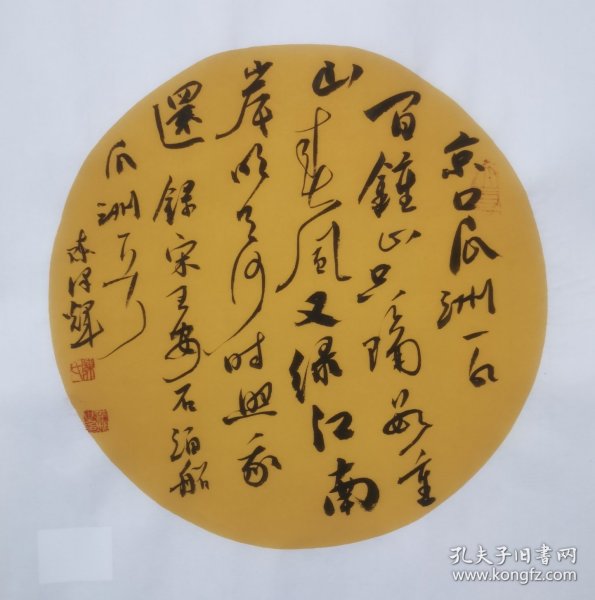 京口瓜洲一水
間鍾山只隔數重
山春風又緑江南
岸明月何時照我
還 録宋王安石泊船
瓜洲
輝
孔夫子旧书网
www.kongfz.com